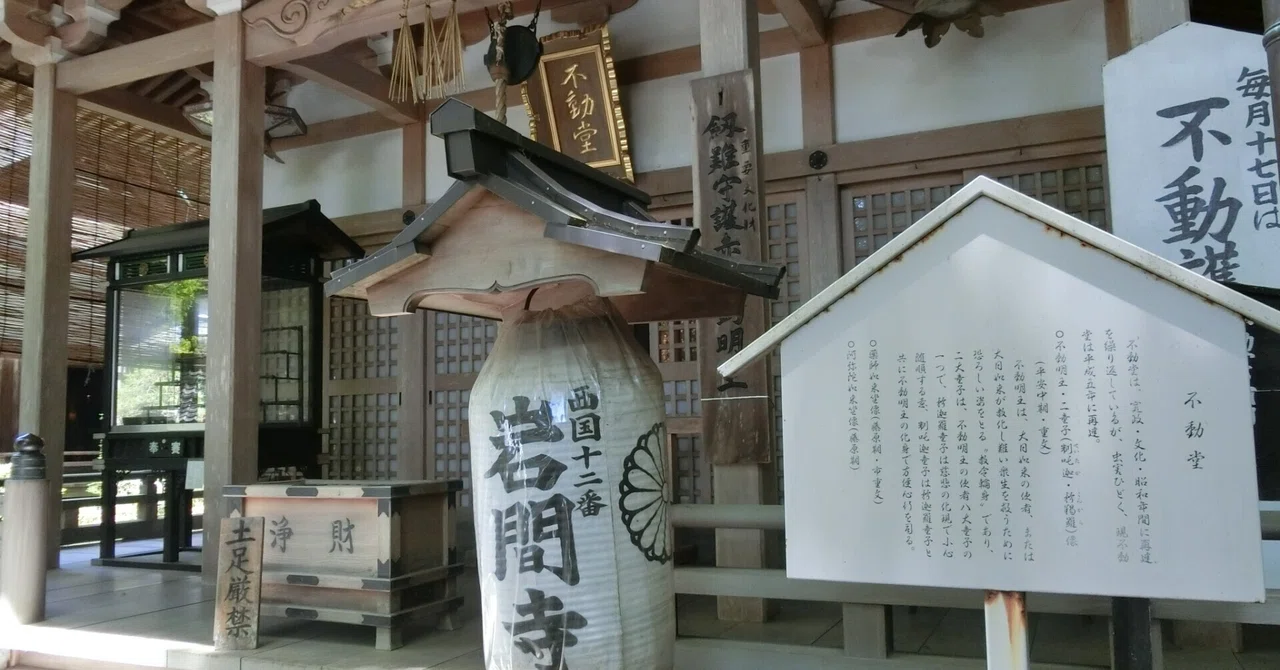 不動堂
重要文化財
毎月十七日は
不動護
奉賽
浄財
土足厳禁
西国十二番
岩間寺
不動堂
不動堂は、寛政・文化・昭和年間に再建
を繰り返しているが、虫害ひどく、現不動
堂は平成五年に再建。
○不動明王・二童子(制吒迦・矜羯羅)像
(平安中期 重文)
不動明王は、大日如来の使者、または
大日如来が教化し難い衆生を救うために
恐ろしい姿をとる"教令輪身"であり、
二大童子は、不動明王の使者八大童子の
一つで、矜迦羅童子は慈悲の化現で小心
随順する意、制吒迦童子は矜迦羅童子と
共に不動明王の化身で方便心行を司る。
○薬師如来坐像(藤原期・市重文)
○阿弥陀如来坐像(藤原期)